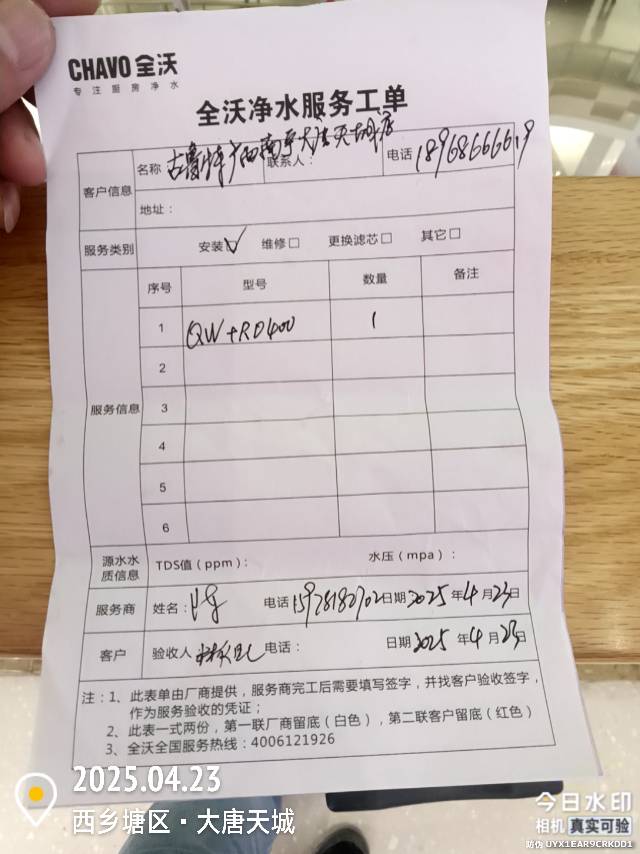 CHAVO 全沃
专注厨房净水
全沃净水服务工单
客户信息 名称 古鲁特广西南宁大唐天城店 联系人： 电话 18968666619
地址：
服务类别 安装☑ 维修□ 更换滤芯□ 其它□
服务信息 序号 型号 数量 备注
1 QW+RO400 1
2
3
4
5
6
源水水质信息 TDS值（ppm）： 水压（mpa）：
服务商 姓名： 电话 15978180702 日期 2025 年 4 月 23 日
客户 验收人 电话： 日期 2025 年 4 月 23 日
注：1、此表单由厂商提供，服务商完工后需要填写签字，并找客户验收签字，
作为服务验收的凭证；
2、此表一式两份，第一联厂商留底（白色），第二联客户留底（红色）
3、全沃全国服务热线：4006121926
2025.04.23
西乡塘区·大唐天城
今日水印
相机 真实可验
防伪 UYX1EAR9CRKDD1